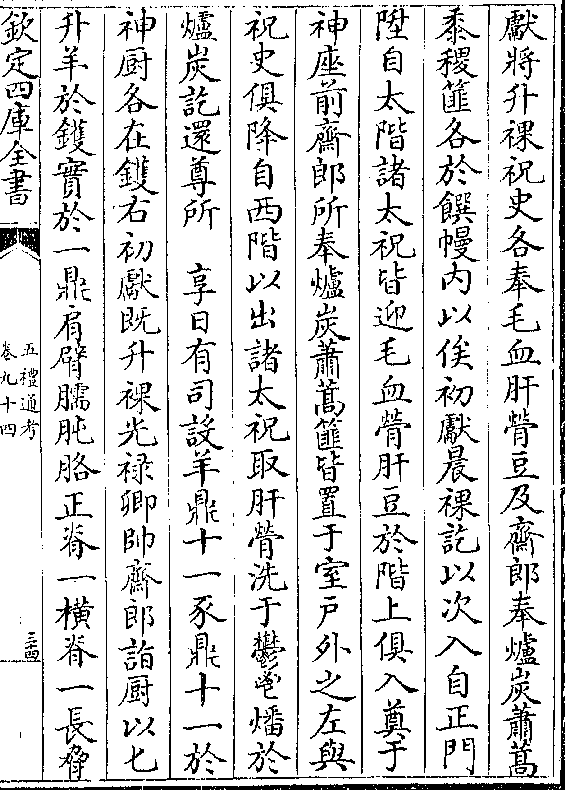 獻將升祼祝史各奉毛血肝膋豆及齋郎奉爐炭蕭蒿
黍稷篚各於饌幔内以俟初獻晨祼訖以次入自正門
陞自太階諸太祝皆迎毛血膋肝豆於階上俱入奠于
神座前齋郎所奉爐炭蕭蒿篚皆置于室戸外之左與
祝史俱降自西階以出諸太祝取肝膋洗于鬱鬯燔於
爐炭訖還尊所　享日有司設羊鼎十一豕鼎十一於
神厨各在鑊右初獻既升祼光禄卿帥齋郎詣厨以匕
升羊於鑊實於一鼎肩臂臑肫胳正脊一橫脊一長脅
欽定四庫全書
五禮通考
卷九十四
三十四